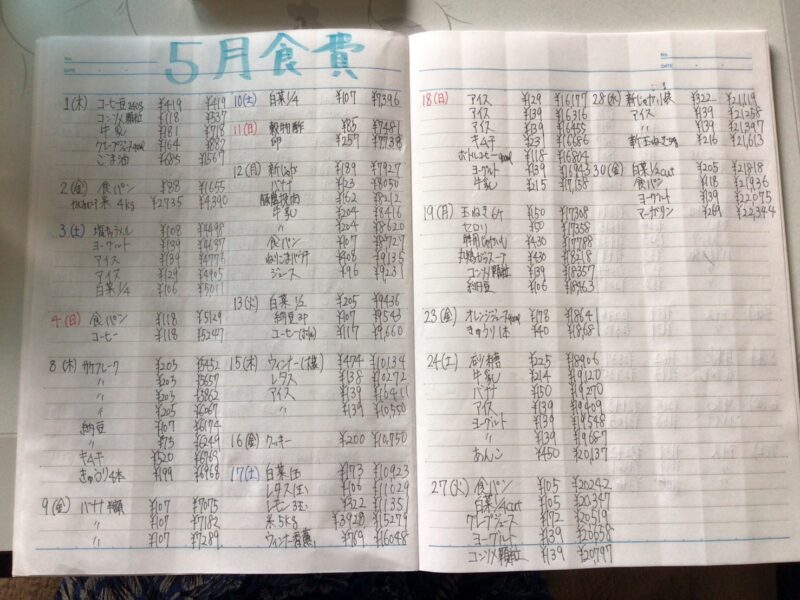 5月食費
1(木) コーヒー豆 ¥419 ¥419
コンソメ顆粒 ¥118 ¥537
牛乳 ¥181 ¥718
グレープジュース ¥164 ¥882
ごま油 ¥685 ¥1567
2(金) 食パン ¥88 ¥1655
米4kg ¥2735 ¥4390
3(土) ¥108 ¥4498
ヨーグルト ¥139
アイス ¥139 ¥4776
アイス ¥129 ¥4905
白菜1/4 ¥106 ¥5011
4(日) 食パン ¥118 ¥5129
コーヒー ¥118 ¥5247
8(木) フレーク ¥205 ¥5452
〃 ¥205 ¥5657
〃 ¥205 ¥5862
〃 ¥205 ¥6067
納豆 ¥107 ¥6174
〃 ¥75 ¥6249
キムチ ¥520
きゅうり4本 ¥199 ¥6968
9(金) バナナ ¥107 ¥7075
〃 ¥107 ¥7182
〃 ¥107 ¥7289
10(土) 白菜1/4 ¥107 ¥7396
11(日) 穀物酢 ¥85 ¥7481
卵 ¥257 ¥7738
12(月) 新じゃが ¥189 ¥7927
バナナ ¥123 ¥8050
豚挽肉 ¥162 ¥8212
牛乳 ¥204 ¥8416
〃 ¥204 ¥8620
食パン ¥107 ¥8727
¥408 ¥9135
ジュース ¥96 ¥9231
13(火) 白菜1/2 ¥205 ¥9436
納豆3P ¥107 ¥9543
コーヒー ¥117 ¥9,660
15(木) ウィンナー ¥474 ¥10,134
レタス ¥138 ¥10272
アイス ¥139 ¥10411
〃 ¥139 ¥10,550
16(金) クッキー ¥200 ¥10,750
17(土) 白菜 ¥173 ¥10923
レタス ¥106 ¥11029
レモン3玉 ¥322 ¥11351
米5kg ¥3928 ¥15279
ウィンナー ¥769 ¥16048
18(日) アイス ¥129 ¥16177
アイス ¥139 ¥16316
アイス ¥139 ¥16455
キムチ ¥16686
ボトルコーヒー ¥118 ¥16804
ヨーグルト ¥139 ¥16943
牛乳 ¥215 ¥17158
19(月) 玉ねぎ6ケ ¥150 ¥17308
セロリ ¥50 ¥17358
¥430 ¥17788
¥430 ¥18218
コンソメ顆粒 ¥139 ¥18357
納豆 ¥106 ¥18463
23(金) オレンジジュース ¥178 ¥1864
きゅうり1本 ¥40 ¥1868
24(土) 砂糖 ¥225 ¥18906
牛乳 ¥214 ¥19120
バナナ ¥150 ¥19270
アイス ¥139 ¥19409
ヨーグルト ¥139 ¥19548
〃 ¥139 ¥19687
あんこ ¥450 ¥20,137
27(火) 食パン ¥105 ¥20242
白菜1/4cut ¥105 ¥20347
グレープジュース ¥172 ¥20519
ヨーグルト ¥139 ¥20658
コンソメ顆粒 ¥139 ¥20797
28(水) 新じゃが ¥322 ¥21,119
アイス ¥139 ¥21258
〃 ¥139 ¥21,397
新玉ねぎ ¥216 ¥21,613
30(金) 白菜1/4cut ¥205 ¥21818
食パン ¥118 ¥21,936
ヨーグルト ¥139 ¥22,075
マーガリン ¥269 ¥22,344